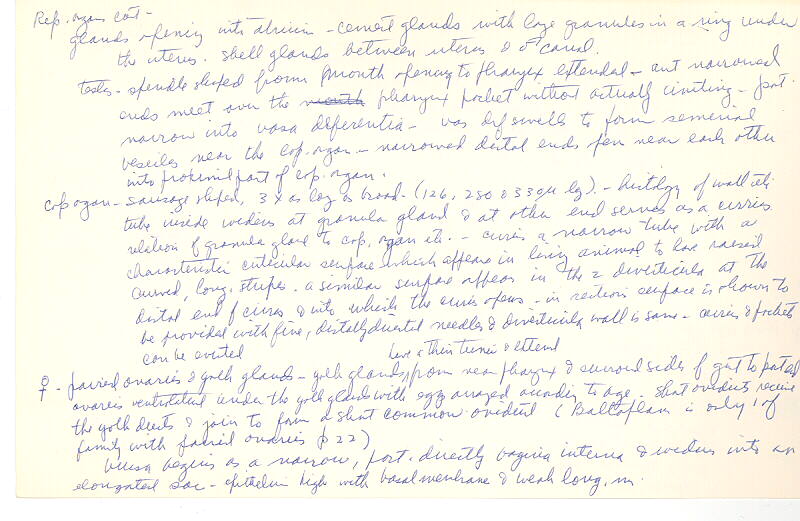 Rep. organ cont-
glands opening into atrium - cement glands with large granules in a ring under
the uterus. shell glands between uterus & ♂ canal.
testes - spindle shaped from mouth opening to pharynx extended - ant narrowed
ends meet over the pharynx pocket without actually uniting - post.
narrow into vasa deferentia - vas def swells to form seminal
vesicles near the cop. organ - narrowed distal ends open near each other
into proximal part of cop. organ.
cop organ - sausage shaped, 3 x as long as broad - (126, 280 & 330µ lg). - histology of wall etc
tube inside widens at granula gland & at other end serves as a cirrus
relation of granula gland to cop. organ etc. - cirrus a narrow tube with a
characteristic cuticular surface which appears in living animal to have raised
curved, long. stripes. a similar surface appears in the 2 diverticula at the
distal end of cirrus & into which the cirrus opens - in sections surface is shown to
be provided with fine, distally directed needles & diverticula wall is same - cirrus & pockets
can be everted
have a thin tunica & extend
♀ - paired ovaries & yolk glands - yolk glands from near pharynx & surround sides of gut to
ovaries under the yolk gland with eggs arranged according to age. short oviducts receive
the yolk ducts & join to form a short common oviduct ( is only 1 of
family with paired ovaries p 22)
bursa begins as a narrow, post. directly vagina interna & widens into an
elongated sac - epithelium high with basal membrane & weak long. m.